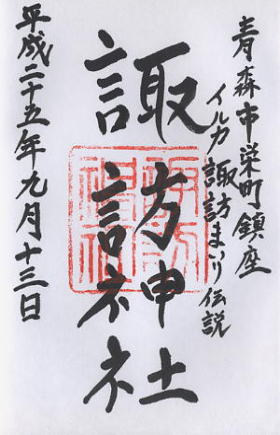 青森市栄町鎮座
イルカ諏訪まいり伝説
諏訪神社
平成二十五年九月十三日
諏訪神社